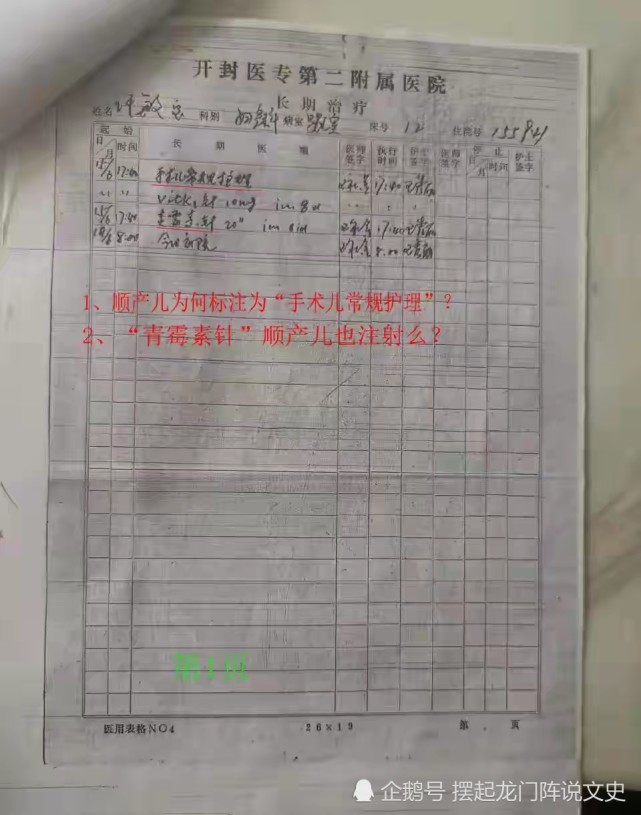 开封医专第二附属医院
长期治疗
姓名 许敏宝 科别 妇产科 病室 床号 12 住院号 155941
起始 长期医嘱 医师签字 执行时间 护士签字 医师签字 停止 护士签字
日/月 时间 日/月 时间
15/6 17:40 手术儿常规护理 17:40
〃 〃 vitk₁针 10mg im Bd 〃
15/6 17:40 青霉素针 20″ im Bid 17:40
18/6 8:00 今日出院 8:00
1、顺产儿为何标注为“手术儿常规护理”?
2、“青霉素针”顺产儿也注射么?
第1页
医用表格NO4 26×19 第 页
企鹅号 摆起龙门阵说文史